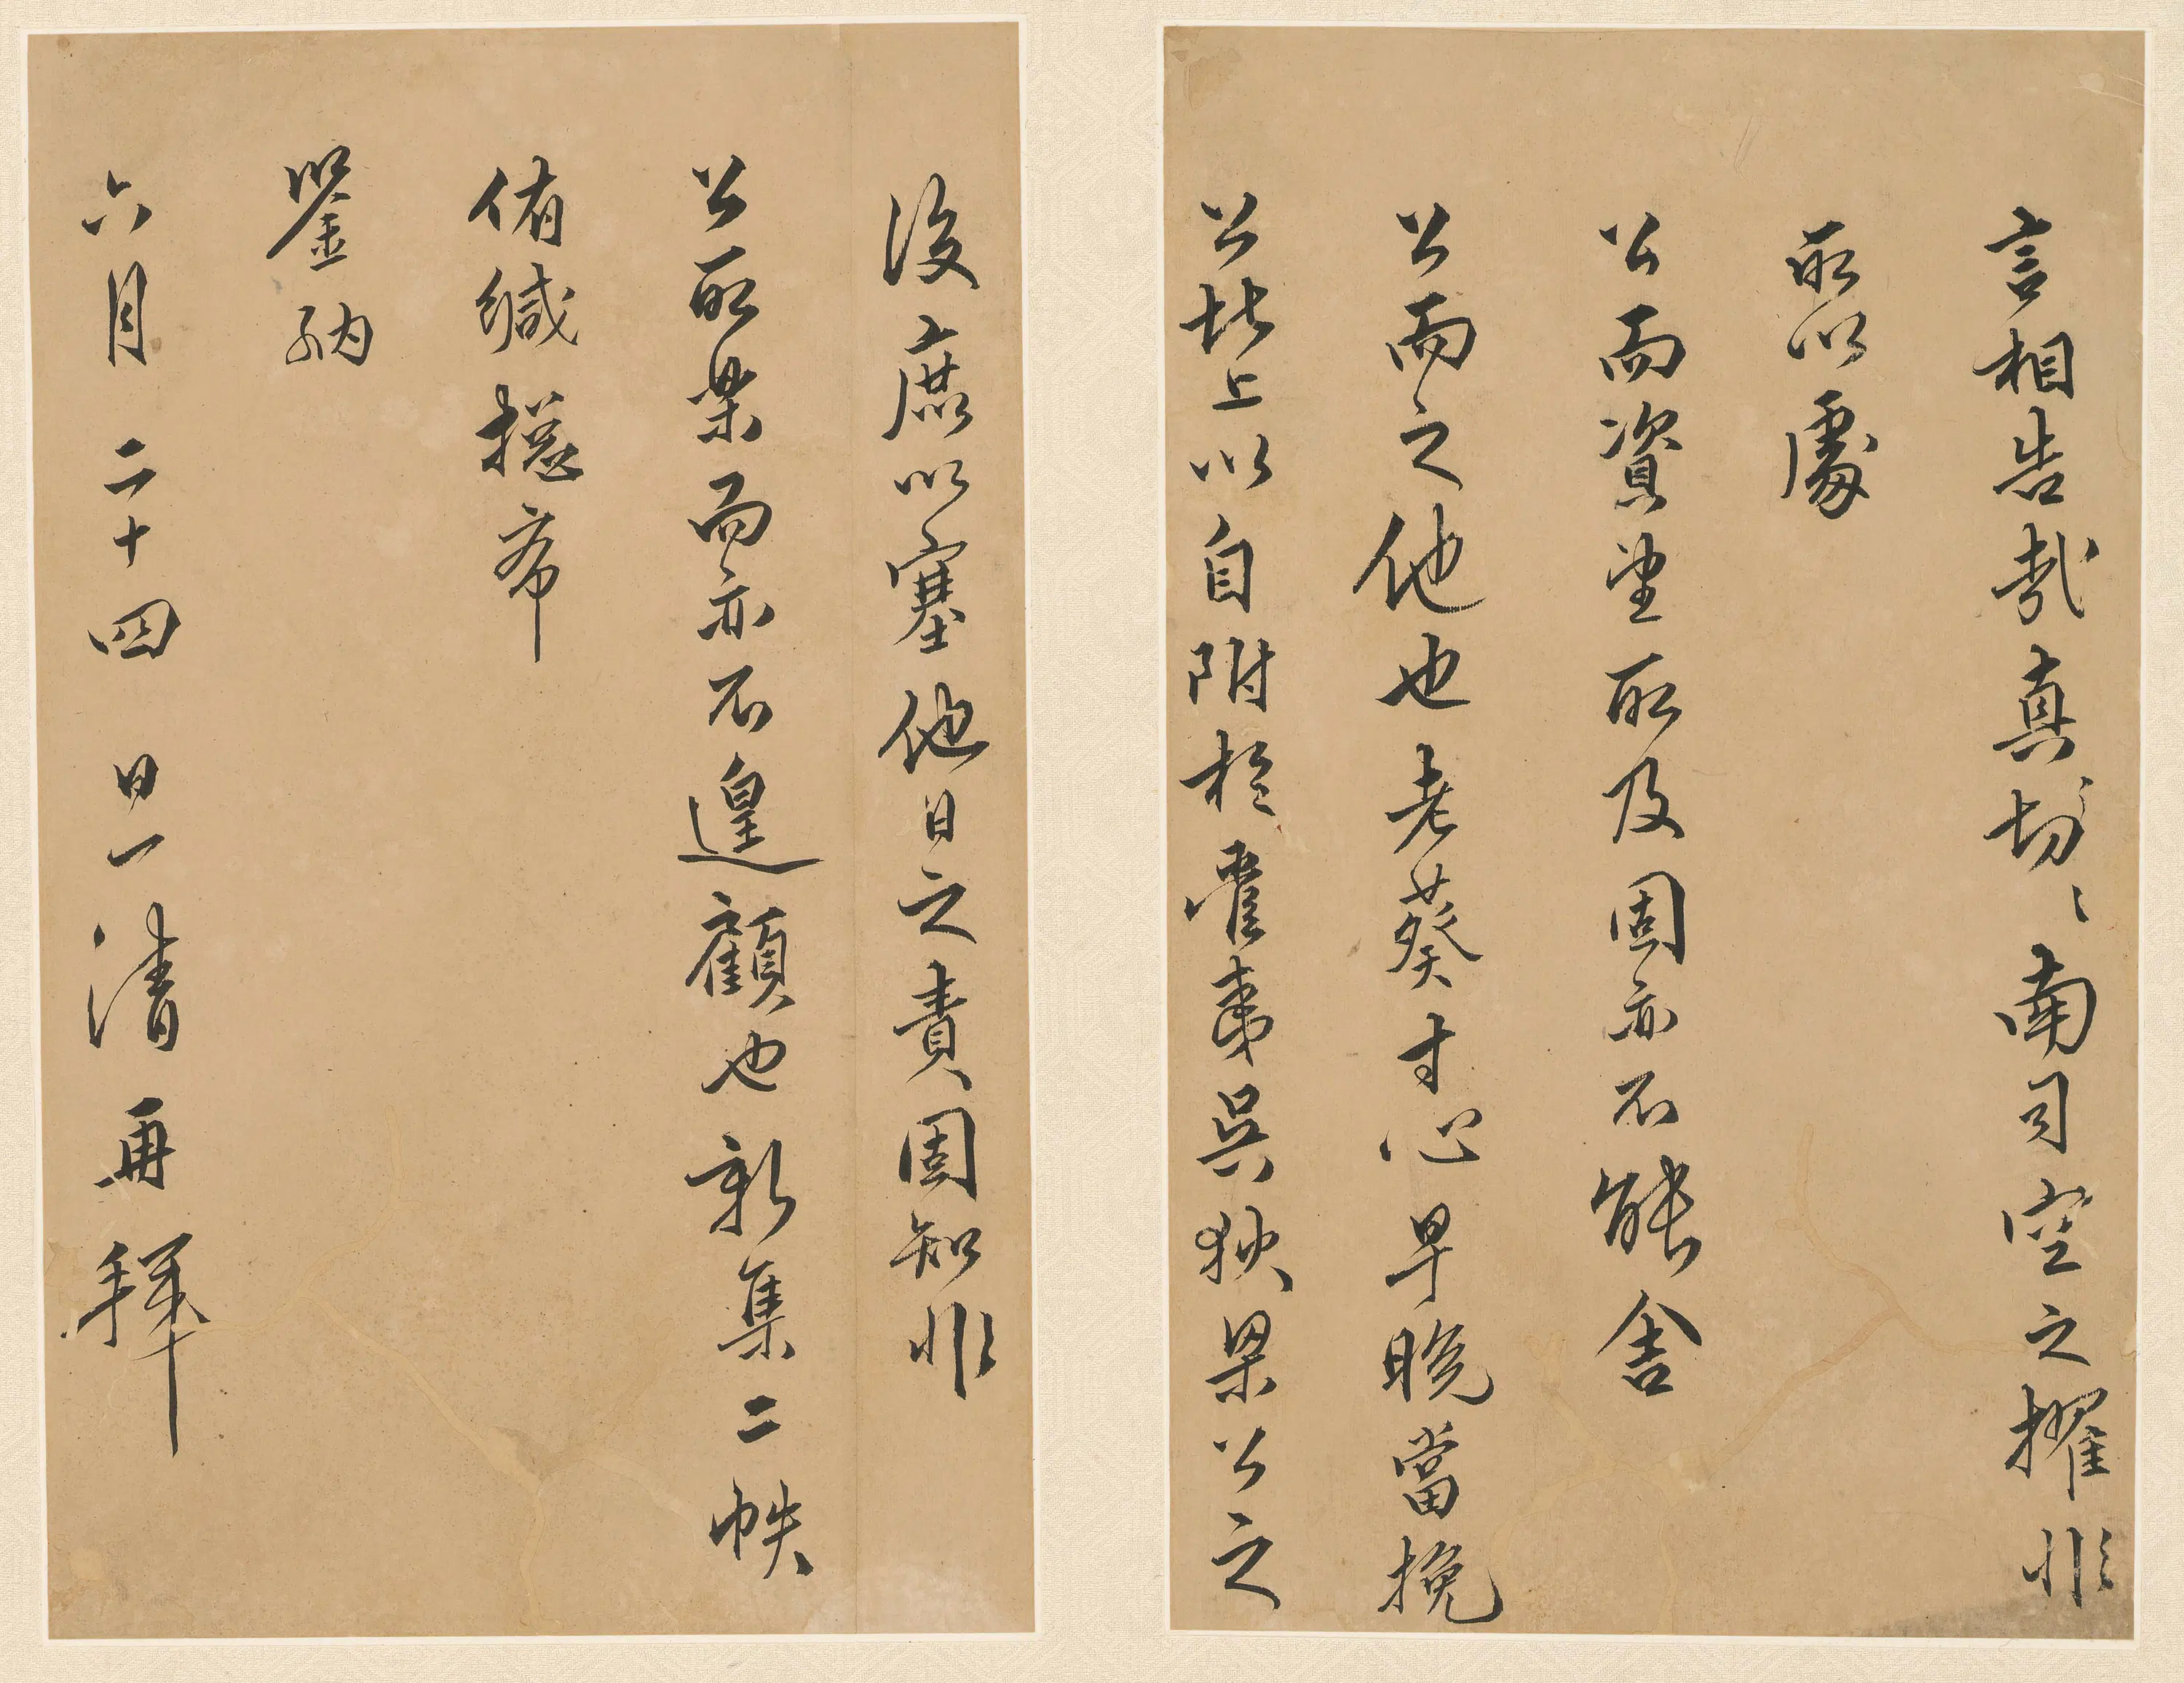 言相告哉真切〻南司空之擢非
所以處
公而資望所及固亦不能舍
公而之他也老葵寸心早晚當挽
公北上以自附於霍夷吳狄梁公之
後庶以塞他日之責固知非
公所樂而亦不遑顧也新集二帙
侑緘揔希
鑒納
六月二十四日一清再拜